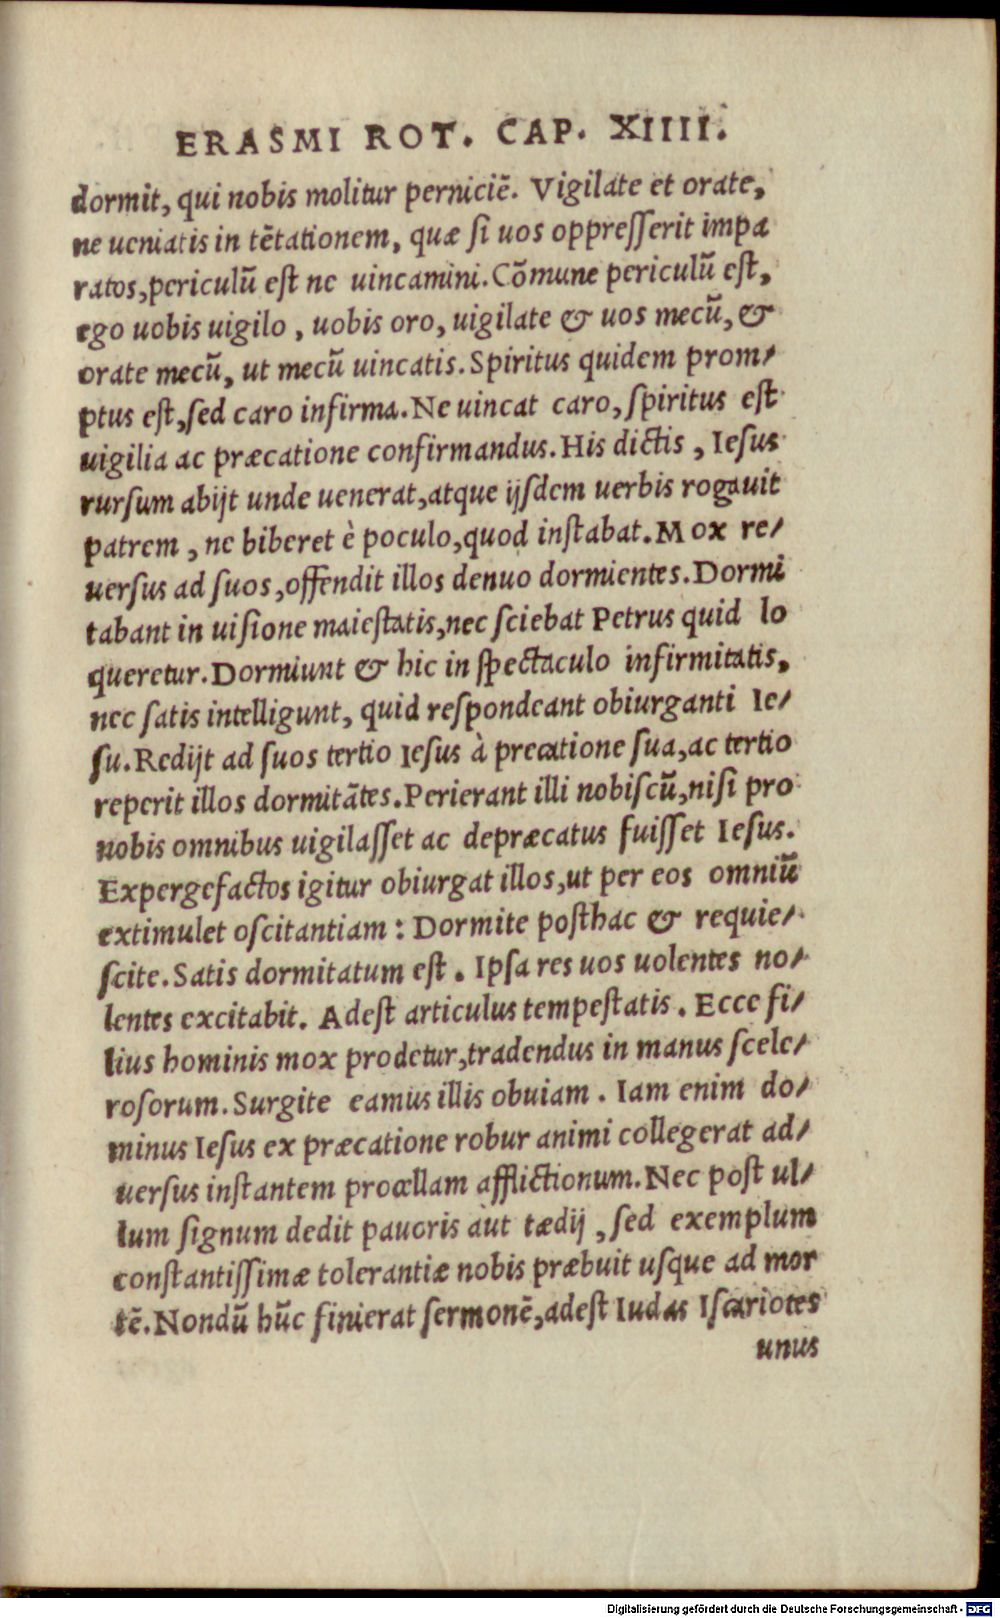 ERASMI ROT. CAP. XIIII.
dormit, qui nobis molitur perniciē. Vigilate et orate,
ne ueniatis in tētationem, quæ si uos oppresserit impa
ratos, periculū est ne uincamini. Cōmune periculū est,
ego uobis uigilo, uobis oro, uigilate & uos mecū, &
orate mecū, ut mecū uincatis. Spiritus quidem prom/
ptus est, sed caro infirma. Ne uincat caro, spiritus est
uigilia ac præcatione confirmandus. His dictis, Iesus
rursum abijt unde uenerat, atque ijsdem uerbis rogauit
patrem, ne biberet è poculo, quod instabat. Mox re/
uersus ad suos, offendit illos denuo dormientes. Dormi
tabant in uisione maiestatis, nec sciebat Petrus quid lo
queretur. Dormiunt & hic in spectaculo infirmitatis,
nec satis intelligunt, quid respondeant obiurganti Ie/
su. Redijt ad suos tertio Iesus à precatione sua, ac tertio
reperit illos dormitātes. Perierant illi nobiscū, nisi pro
nobis omnibus uigilasset ac depræcatus fuisset Iesus.
Expergefactos igitur obiurgat illos, ut per eos omniū
extimulet oscitantiam: Dormite posthac & requie/
scite. Satis dormitatum est. Ipsa res uos uolentes no/
lentes excitabit. Adest articulus tempestatis. Ecce fi/
lius hominis mox prodetur, tradendus in manus scele/
rosorum. Surgite eamus illis obuiam. Iam enim do/
minus Iesus ex præcatione robur animi collegerat ad/
uersus instantem procellam afflictionum. Nec post ul/
lum signum dedit pauoris aut tædij, sed exemplum
constantissimæ tolerantiæ nobis præbuit usque ad mor
tē. Nondū hūc finierat sermonē, adest Iudas Iscariotes
unus
Digitalisierung gefördert durch die Deutsche Forschungsgemeinschaft - DFG